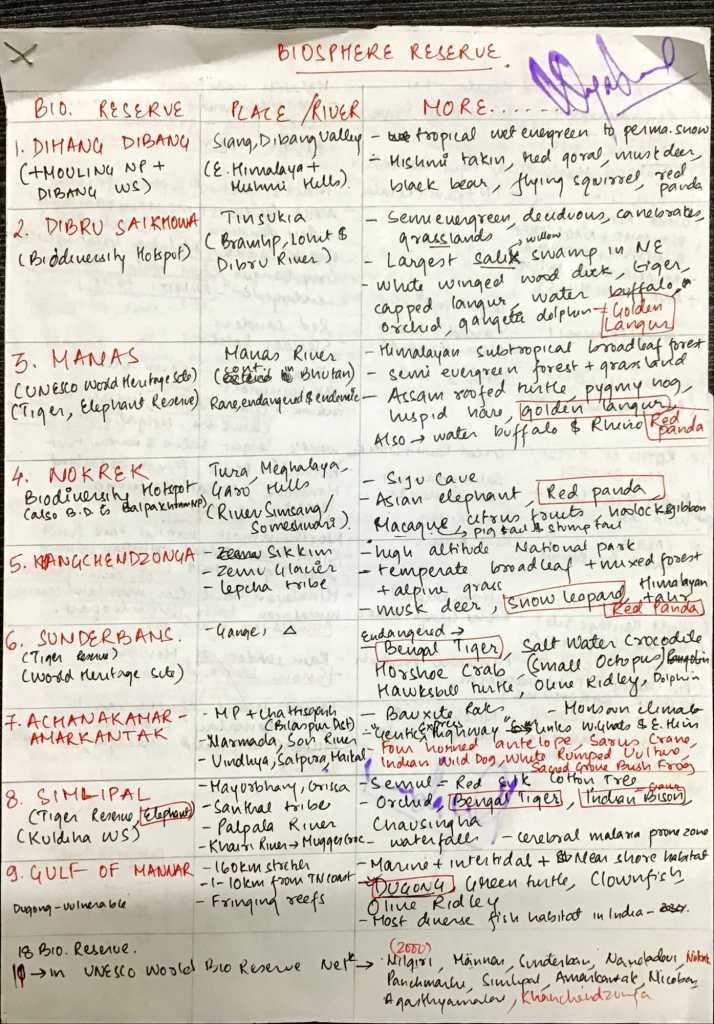 BIOSPHERE RESERVE.
BIO. RESERVE PLACE/RIVER MORE......
1. DIHANG DIBANG
(+MOULING NP +
DIBANG WS)
Siang, Dibang Valley
(E. Himalaya +
Mishmi Hills).
- tropical wet evergreen to perma. snow
- Mishmi takin, red goral, musk deer,
black bear, flying squirrel, red
panda
2. DIBRU SAIKHOWA
(Biodiversity Hotspot)
Tinsukia
(Bramhp, Lohit &
Dibru River)
- Semievergreen, deciduous, canebrakes,
grasslands
- Largest salix swamp in NE
willow
- White winged wood duck, tiger,
capped langur, water buffalo,
orchid, gangetic dolphin -
Golden
Langur
3. MANAS
(UNESCO World Heritage Site)
(Tiger, Elephant Reserve)
Manas River
(Bhutan)
Rare, endangered & endemic
- Himalayan subtropical broadleaf forest
- semi evergreen forest + grassland
- Assam roofed turtle, pygmy hog,
hispid hare, golden langur,
Also → water buffalo & Rhino
Red
panda
4. NOKREK
Biodiversity Hotspot
(also B.D is Balpakhram NP)
Tura, Meghalaya,
Garo Hills
(River Simsang/
Someshwari).
- Siju cave
- Asian elephant, Red panda,
Macaque, citrus fruits, hoolock gibbon
↳ pig tail & stump tail
5. KANGCHENDZONGA
- Sikkim
- Zemu Glacier
- Lepcha tribe
- high altitude National park
- temperate broadleaf + mixed forest
+ alpine grass
- musk deer, Snow leopard, Himalayan
tahr
Red Panda
6. SUNDERBANS.
(Tiger Reserve)
(World Heritage Site)
- Gange, △
Endangered →
- Bengal Tiger, Salt Water Crocodile
Horshoe Crab (Small Octopus)
Hawksbill turtle, Olive Ridley, Dolphin
7. ACHANAKAMAR-
AMARKANTAK
- MP + Chattisgarh
(Bilaspur Dist)
- Narmada, Son River
- Vindhya, Satpura, Maikal
- Bauxite Raks - Monsoon climate
- "Genetic Highway" links W.ghats & E. Him
Express
- Four horned antelope, Sarus Crane,
Indian Wild Dog, White Rumped Vulture,
Sacred Grove Bush Frog
8. SIMLIPAL
(Tiger Reserve, Elephant)
(Kuldiha WS)
- Mayurbhanj, Orissa
- Santhal tribe
- Palpala River
- Khairi River → Mugger Croc
- Semul - Red silk Cotton Tree
- Orchid, Bengal Tiger, Indian Bison,
Gaur
Chausingha
- waterfalls - cerebral malaria prone zone
9. GULF OF MANNAR
Dugong - vulnerable
- 160km stretch
- 1-10km from TN coast
- Fringing reefs
- Marine + intertidal + Near shore habitat
- DUGONG, Green turtle, Clownfish
Olive Ridley
- Most diverse fish habitat in India -
18 Bio. Reserve.
→ in UNESCO World Bio Reserve Netk →
(2000)
Nilgiri, Mannar, Sunderban, Nandadevi, Nokrek
Panchmarhi, Simlipal, Amarkantak, Nicobar,
Agasthyamalai, Khanchendzonga